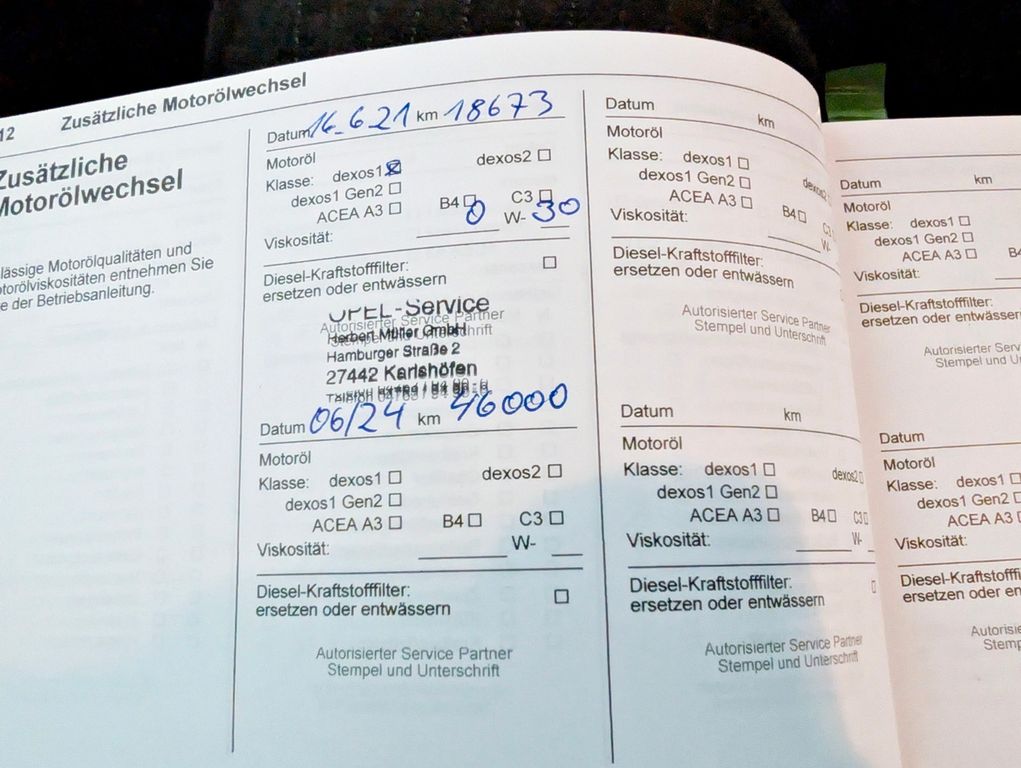 12 Zusätzliche Motorölwechsel
Zusätzliche
Motorölwechsel
lässige Motorölqualitäten und
torölviskositäten entnehmen Sie
e der Betriebsanleitung.
Datum 16.6.21 km 18673
Motoröl
Klasse: dexos1 dexos2
dexos1 Gen2
ACEA A3 B4 C3
Viskosität: 0 W- 30
Diesel-Kraftstofffilter:
ersetzen oder entwässern
OPEL-Service
Autorisierter Service Partner
Herbert Müller GmbH
Stempel und Unterschrift
Hamburger Straße 2
27442 Karlshöfen
Datum 06/24 km 46000
Motoröl
Klasse: dexos1 dexos2
dexos1 Gen2
ACEA A3 B4 C3
Viskosität: W-
Diesel-Kraftstofffilter:
ersetzen oder entwässern
Autorisierter Service Partner
Stempel und Unterschrift
Datum km
Motoröl
Klasse: dexos1 dexos
dexos1 Gen2
ACEA A3 B4 C3
Viskosität: W-
Diesel-Kraftstofffilter:
ersetzen oder entwässern
Autorisierter Service Partner
Stempel und Unterschrift
Datum km
Motoröl
Klasse: dexos1 dexos2
dexos1 Gen2
ACEA A3 B4 C3
Viskosität: W-
Diesel-Kraftstofffilter:
ersetzen oder entwässern
Autorisierter Service Partner
Stempel und Unterschrift
Datum km
Motoröl
Klasse: dexos1
dexos1 Gen2
ACEA A3 B4
Viskosität:
Diesel-Kraftstofffilter:
ersetzen oder entwässern
Autorisierter Serv
Stempel und Un
Datum
Motoröl
Klasse: dexos1
dexos1 Gen2
ACEA A3
Viskosität:
Diesel-Kraftstofffi
ersetzen oder en
Autorisie
Stemp